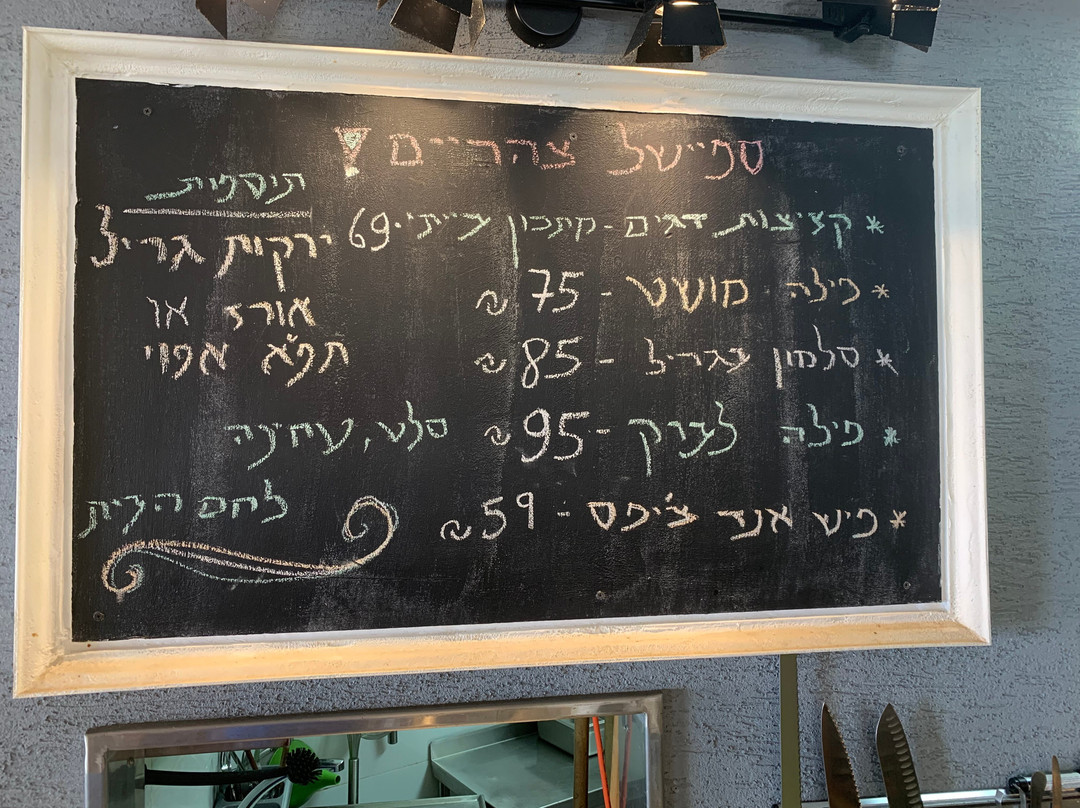 ספיישל צהריים!
* קציצות דגים - מתכון ביתי. 69
* פילה מושט - 75 ₪
* סלמון בגריל - 85 ₪
* פילה לברק - 95 ₪
* פיש אנד צ'יפס - 59 ₪
תוספות
ירקות גריל
אורז או
תפו"א אפוי
סלט, טחינה
לחם הבית